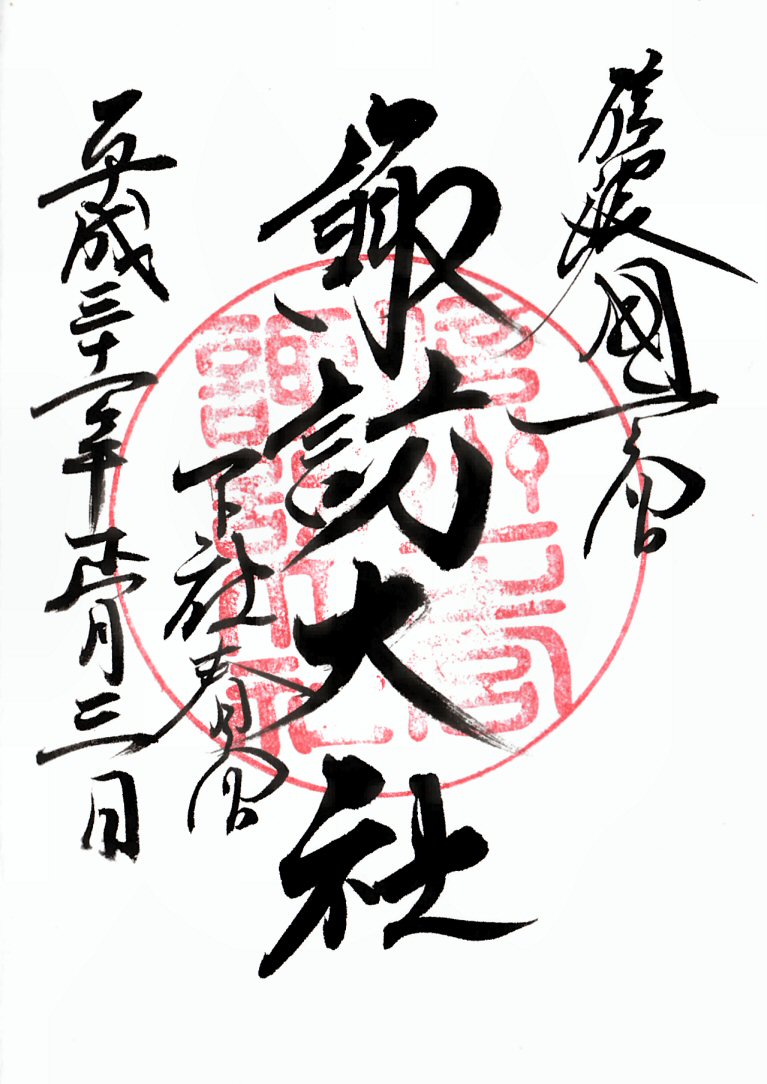 信濃國一之宮
諏訪大社
下社春宮
平成三十一年正月三日